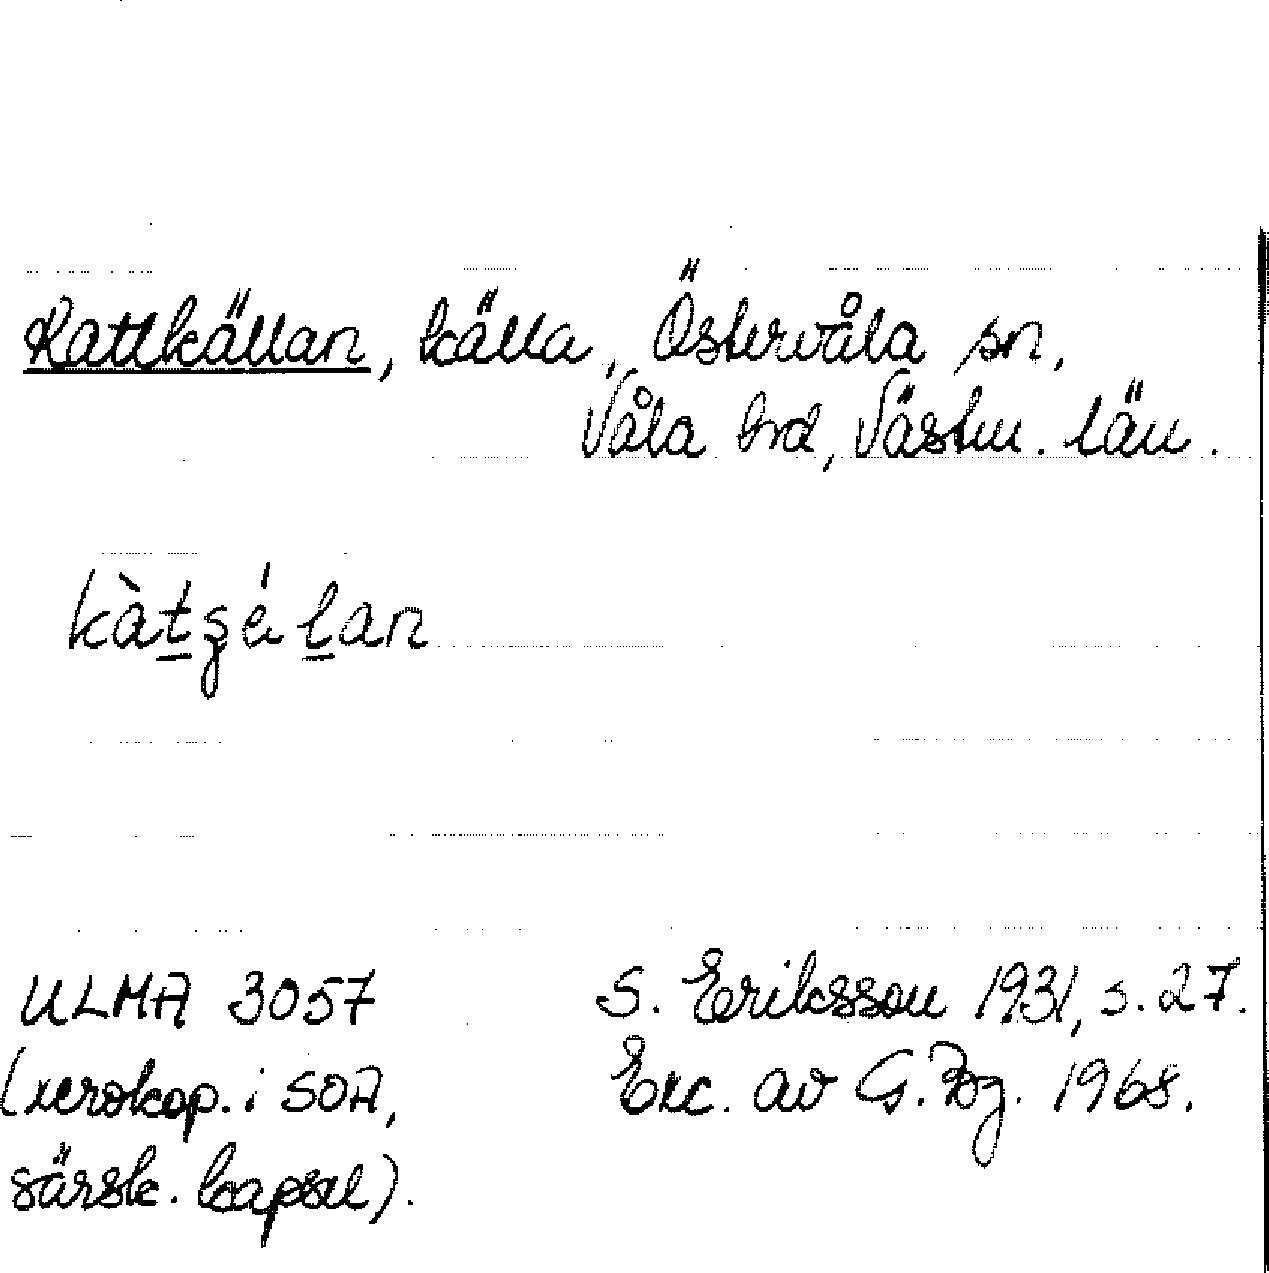 Kattkällan, källa, Östervåla sn,
Våla hd, Västm. län.
kàtʂélan
ULMA 3057
S. Eriksson 1931, s. 27.
(xerokop. i SOA,
Exc. av G. Bg. 1968.
särsk. kapsel).